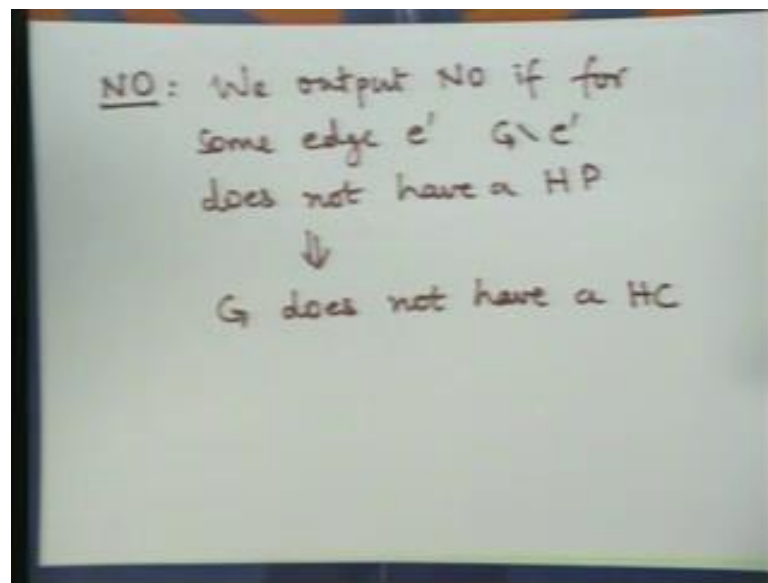 NO: We output NO if for
some edge e' G\e'
does not have a HP
⇓
G does not have a HC